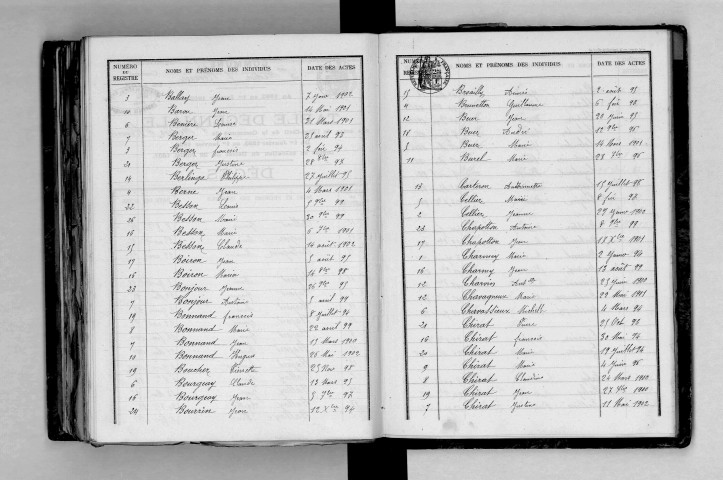 NUMÉRO DU REGISTRE NOMS ET PRÉNOMS DES INDIVIDUS DATE DES ACTES
3 Ballay Jean 7 Janv 1902
14 Baron Jean 14 Mai 1901
6 Benière Louise 21 Mars 1901
7 Berger Marie 23 avril 93
3 Berger francois 2 fév 94
21 Berger Justine 28 Xbre 93
14 Berlinge Philippe 23 juillet 95
4 Berne Jean 4 Mars 1901
22 Besson Louis 99
26 Besson Marie 30 9bre 99
16 Besson Marie 6 7bre 1901
15 Besson Claude 14 août 1902
17 Boiron Jean 5 août 95
16 Boiron Maria 98
23 Bonjour Jeanne 95
7 Bonjour 5 avril 94
19 Bonnand francois 8 juillet 94
8 Bonnand Marie 22 avril 99
7 Bonnand Jean 13 Mars 1900
10 Bonnand 26 Mai 1902
19 Boucher 98
6 Bourguay Claude 13 Mars 95
16 Bourguay Jean 5 7bre 97
24 Bourrin Jean 12 Xbre 94
NUMÉRO DU REGISTRE NOMS ET PRÉNOMS DES INDIVIDUS DATE DES ACTES
15 2 août 95
4 Brunetton Guillaume 6 fév 98
12 Buer Jean 95
18 Buer André 95
5 Buer Marie 14 Mars 1901
11 Burel Marie 96
13 Carteron Antoinette 15 Juillet 98
5 Cellier Marie 8 fév 97
2 Cellier Jeanne 1900
23 Chapolton Antoine 99
17 Chapolton Jean 18 Xbre 1901
1 Charmey Marie 2 Janv 94
16 Charmy Jean 13 août 99
12 Charvin 23 Juin 1900
12 Chavagneux Marie 29 Mai 1901
6 Chavassieux Michel 4 Mars 94
21 Chirat Pierre 23 Oct 93
16 Chirat francois 30 Mai 94
20 Chirat Marie 19 Juillet 94
9 Chirat Marie 4 Juin 96
8 Chirat Claudine 24 Mars 1900
19 Chirat Jean 1900
7 Chirat 11 Mai 1902